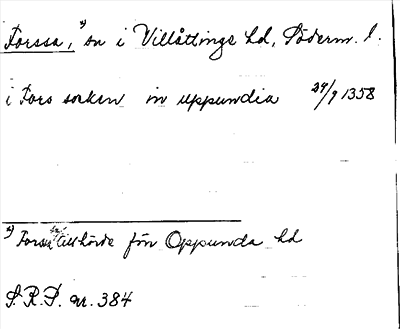 Forssa,*) sn i Villåttinge hd, Söderm. l.
i Fors socken in uppundia 24/9 1358
*) Forssa sn tillhörde förr Oppunda hd
S.R.P. nr. 384